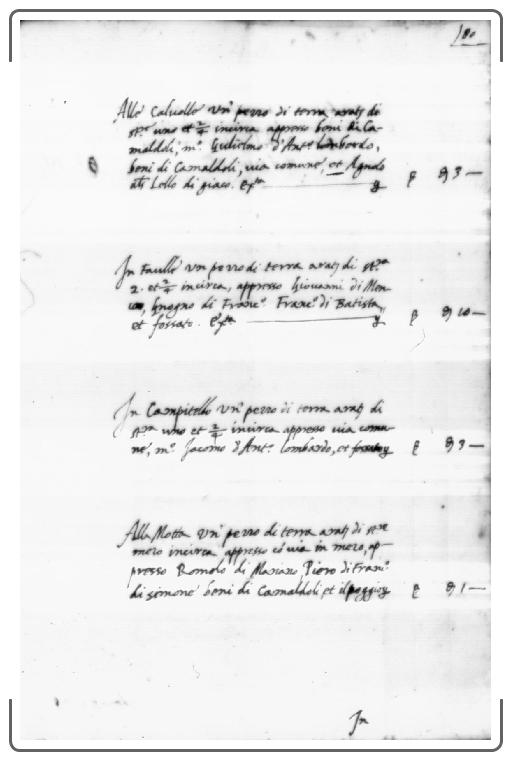 180
Alle Caluelle un pezzo di terra arat. di
st.ra uno et 2/4 incirca appresso beni di Ca-
maldoli, m.o Gulielmo d'Ant.o lombardo,
beni di Camaldoli, via comune, et Agnolo
Lello di giaco.
3 —
In Faulle un pezzo di terra arat. di st.ra
2. et 2/4 incirca, appresso Giovanni di Men
di Franc.o Franc.o di Batista,
et fossato.
10 —
In Campitello un pezzo di terra arat. di
st.ra uno et 2/4 incirca appresso via comu-
ne, m.o Jacomo d'Ant.o lombardo, et fossato
3 —
Alla Motta un pezzo di terra arat. di st.ro
mezo incirca appresso via in mezo, ap-
presso Romolo di Mariano, Piero di Franc.o
di simone beni di Camaldoli et il poggio
1 —
In